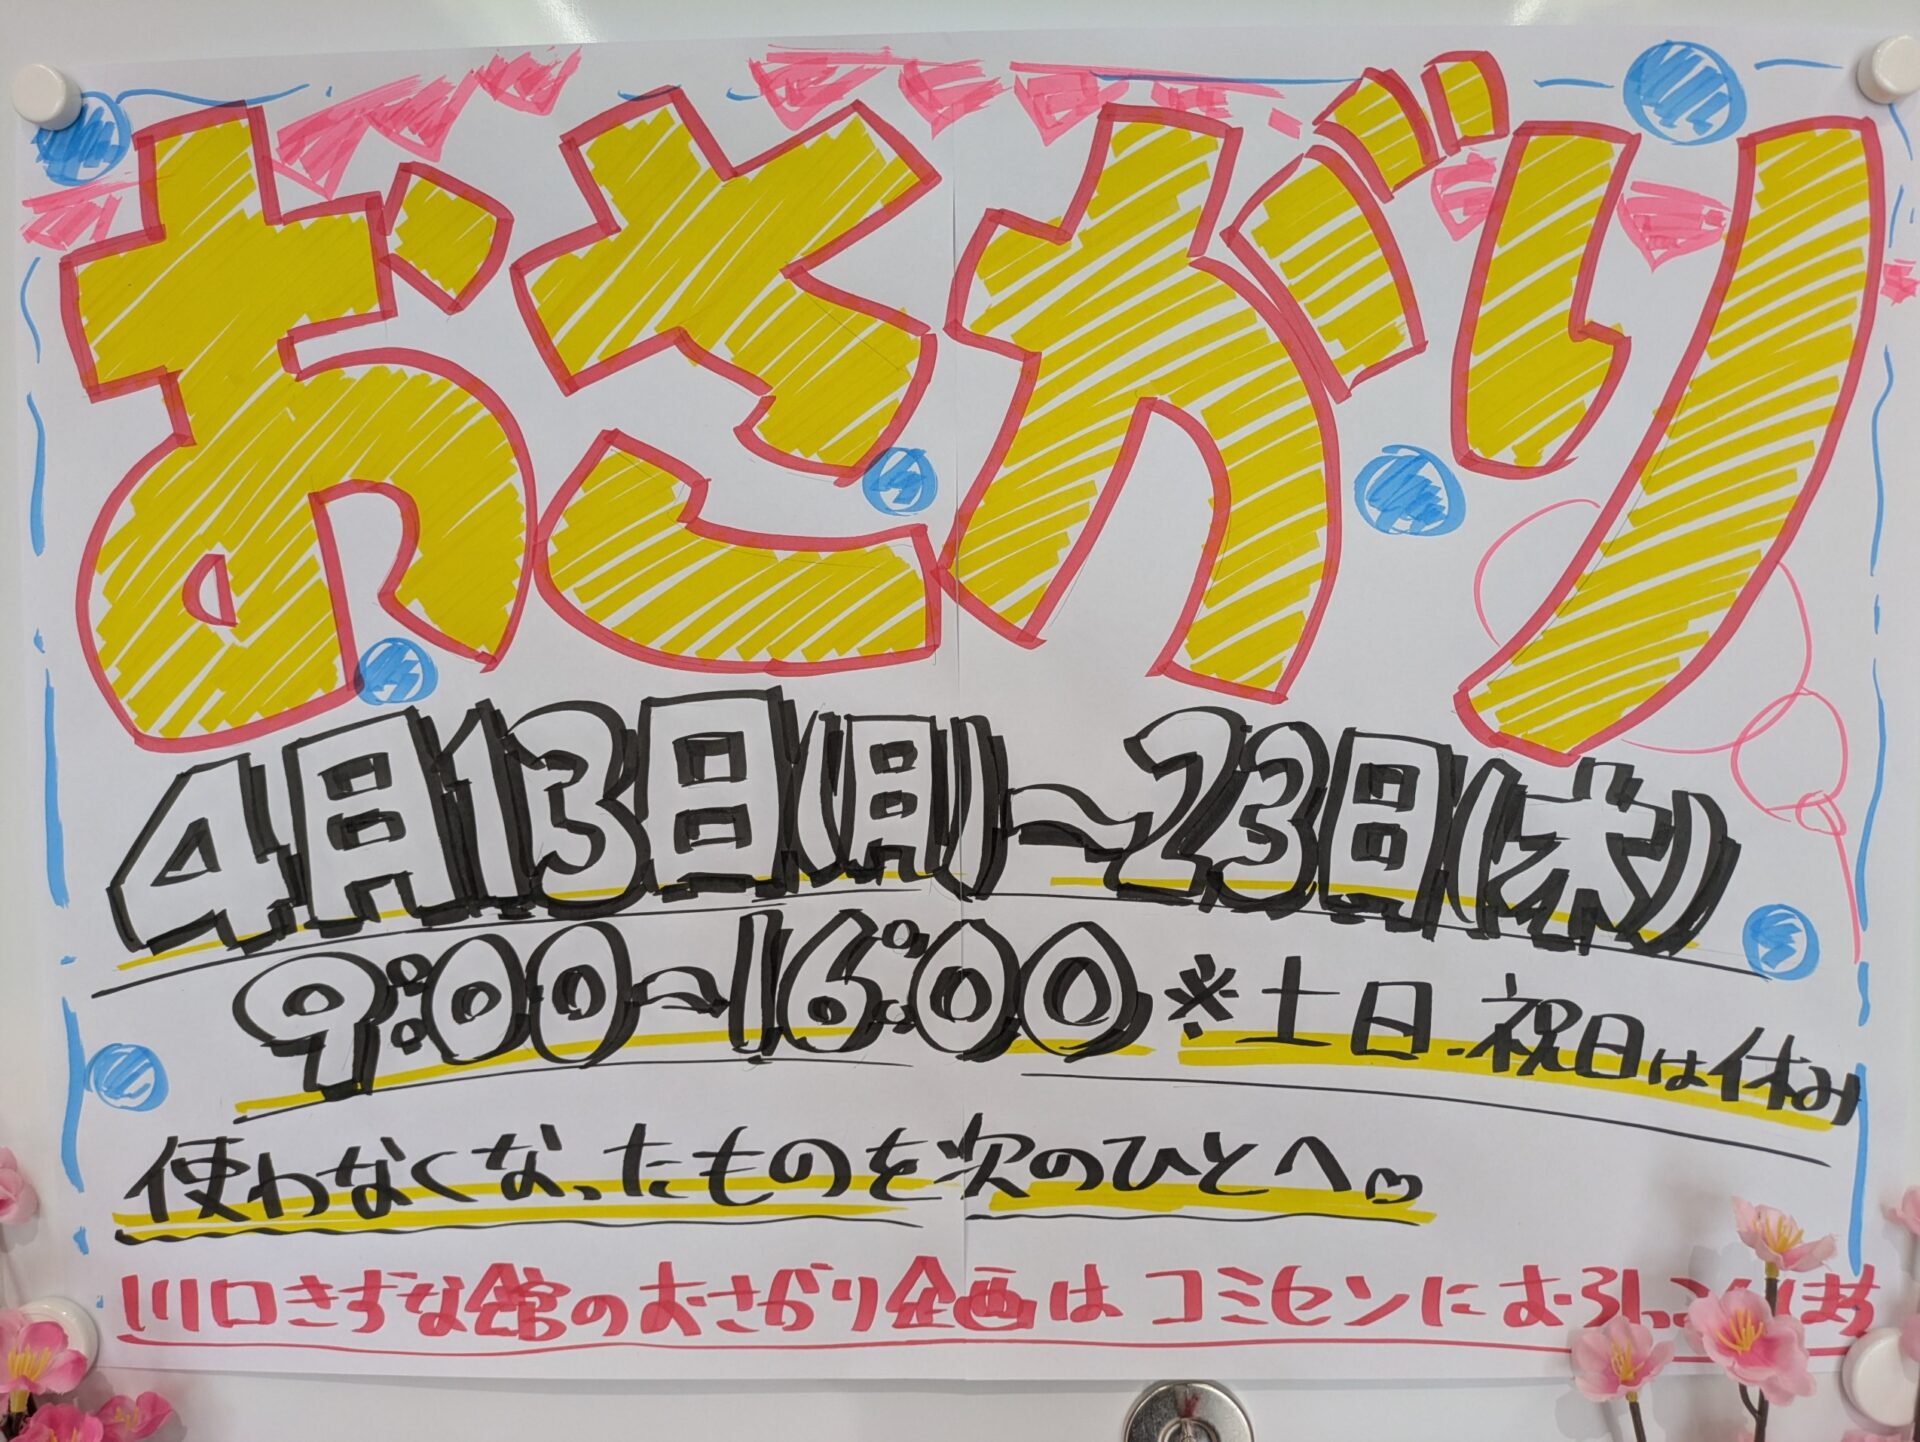 おさがり
4月13日(月)〜23日(木)
9:00〜16:00 ※土日.祝日は休み
使わなくなったものを次のひとへ♡
川口きずな館のおさがり企画は コミセンに